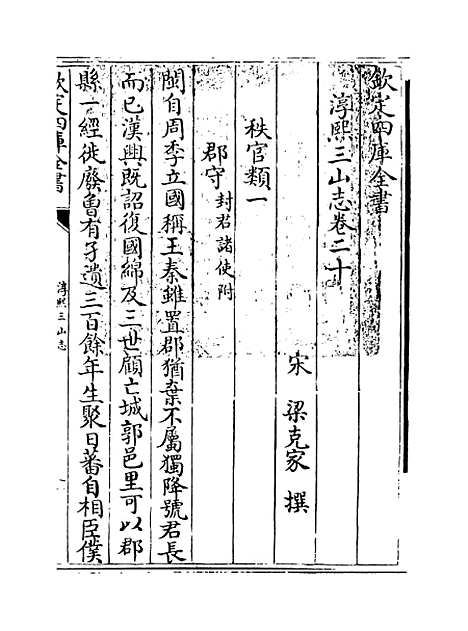 欽定四庫全書
淳熙三山志卷二十
宋 梁克家 撰
秩官類一
郡守封君諸使附
閩自周季立國稱王秦雖置郡猶棄不屬獨降號君長
而已漢興既詔復國綿及三世顧亡城郭邑里可以郡
縣一經徙廢魯有孑遺三百餘年生聚日蕃自相臣僕
欽定四庫全書
淳熙三山志
一